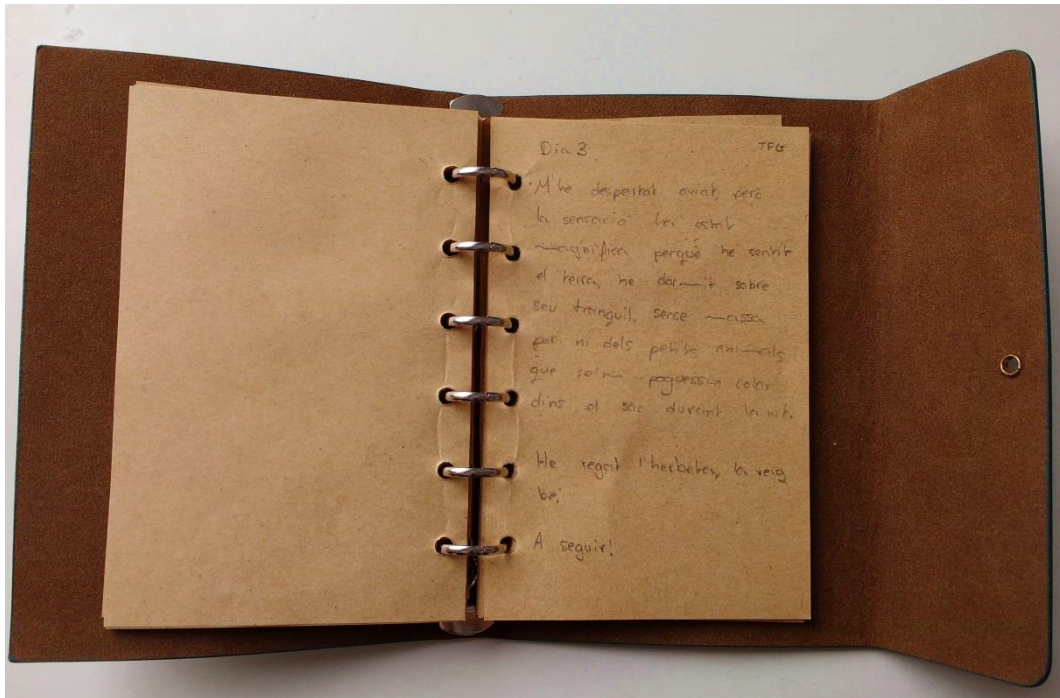 Dia 3 TFG
M'he despertat aviat, però
la sensació ha estat
magnífica perquè he sentit
el terra, he dormit sobre
seu tranquil, sense massa
por ni dels petits animals
que se'm poguessin colar
dins el sac durant la nit.
He regat l'herbeta, la veig
bé.
A seguir!